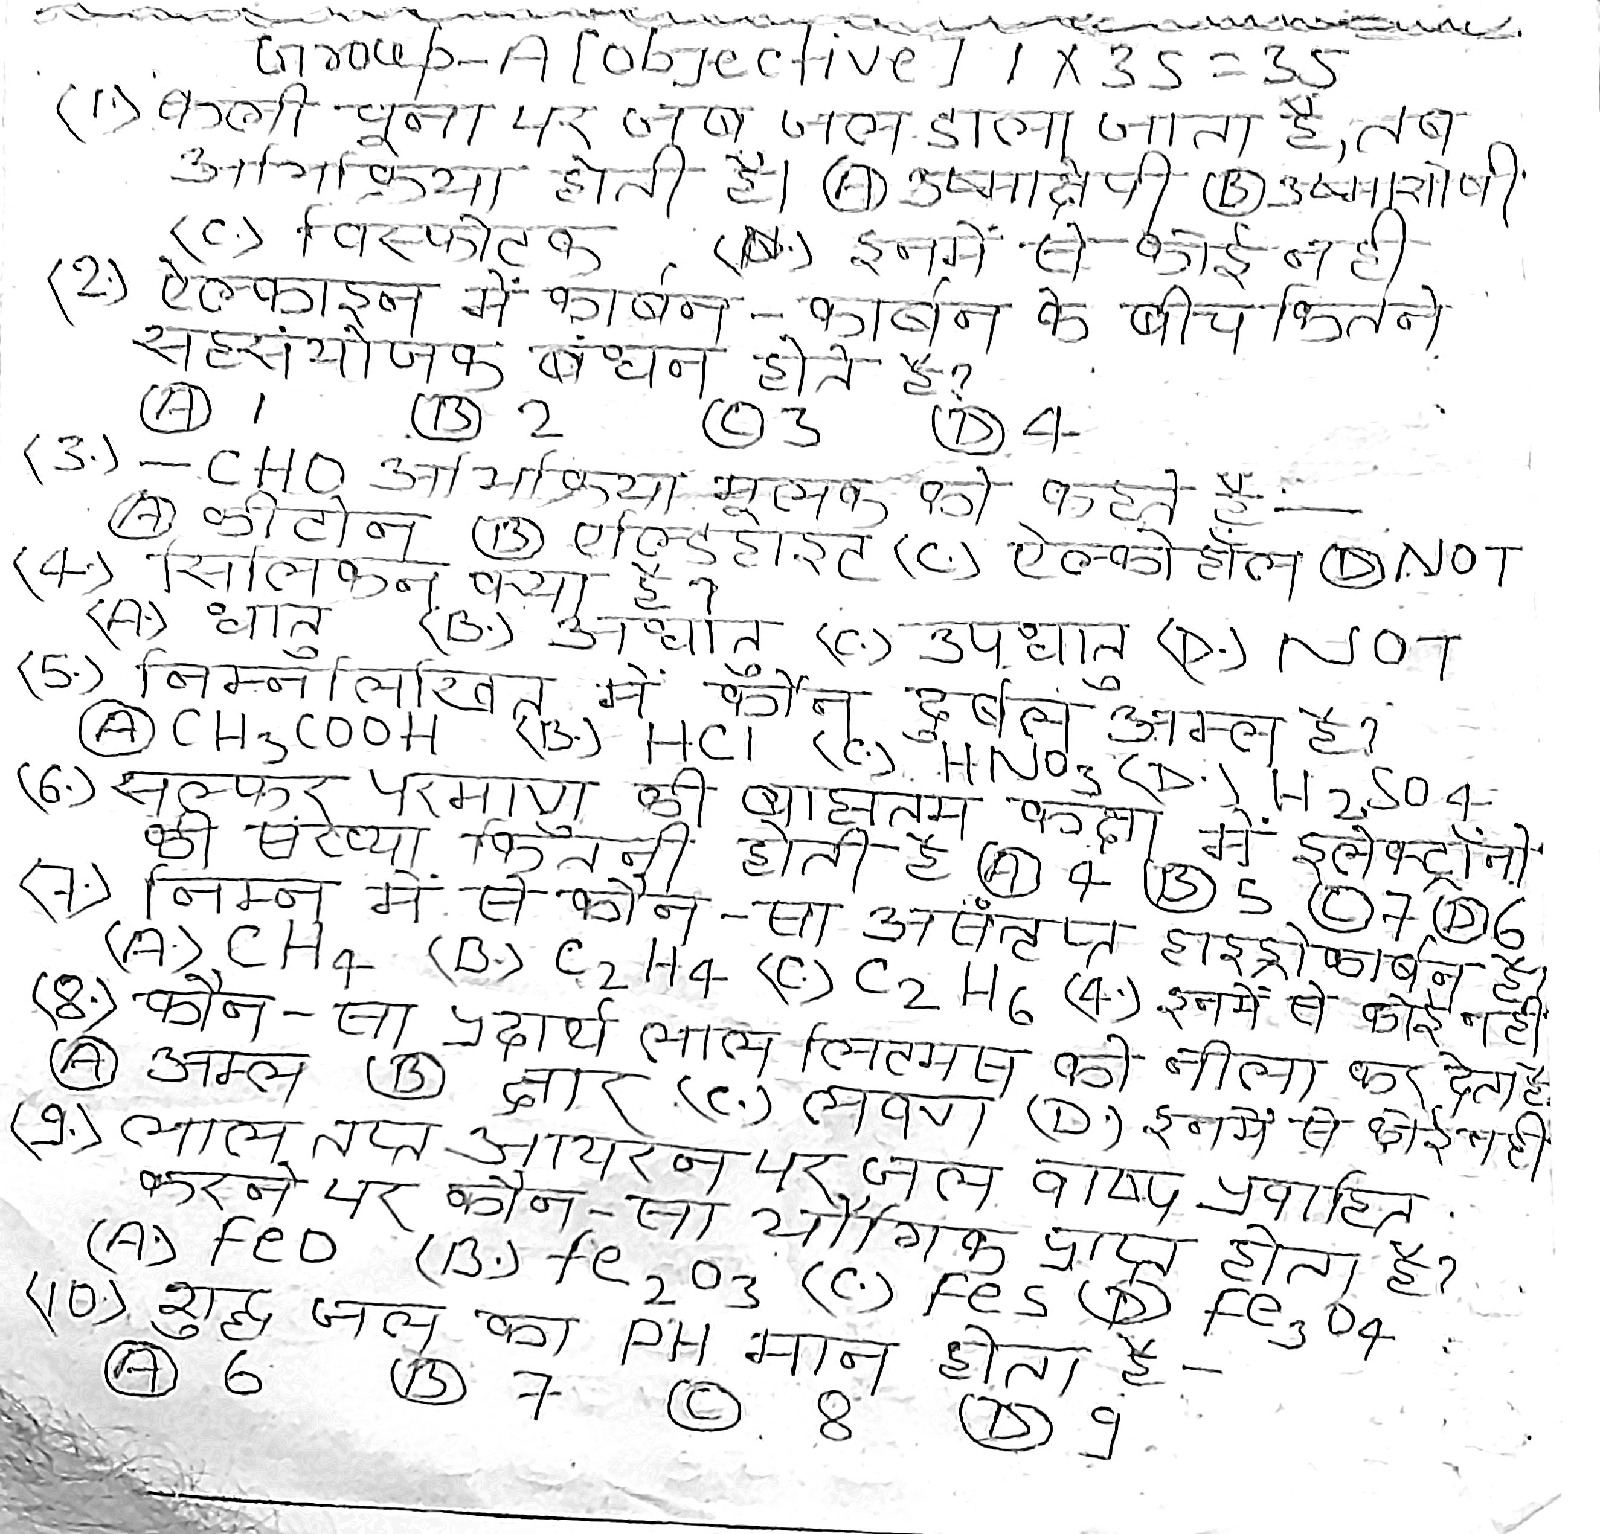 Group-A [Objective] 1 X 35 = 35
(1.) कली चूना पर जब जल डाला जाता है, तब
अभिक्रिया होती है। (A) उष्माक्षेपी (B) उष्माशोषी
(C.) विस्फोटक (D.) इनमें से कोई नही
(2.) ऐल्काइन में कार्बन - कार्बन के बीच कितने
सहसंयोजक बंधन होते है?
(A) 1 (B) 2 (C) 3 (D) 4
(3.) – CHO अभिक्रिया मूलक को कहते है:—
(A) कीटोन (B) एल्डिहाइट (C.) ऐल्कोहॉल (D) NOT
(4.) सिलिकन क्या है?
(A.) धातु (B.) अधातु (C.) उपधातु (D.) NOT
(5.) निम्नलिखित में कौन दुर्बल अम्ल है?
(A) CH3COOH (B.) HCl (C.) HNO3 (D.) H2SO4
(6.) सल्फर परमाणु की बाह्यतम कक्षा में इलेक्ट्रॉनो
की संख्या कितनी होती है (A) 4 (B) 5 (C) 7 (D) 6
(7.) निम्न में से कौन - सा असंतृप्त हाइड्रोकार्बन है?
(A.) CH4 (B.) C2H4 (C.) C2H6 (4.) इनमें से कोई नही
(8.) कौन - सा प्रदार्थ लाल लिटमस को नीला कर देता है
(A) अम्ल (B) क्षार (C.) लवण (D.) इनमें से कोई नही
(9.) लाल तप्त आयरन पर जल वाष्प प्रवाहित
करने पर कौन - सा यौगिक प्राप्त होता है?
(A.) FeO (B.) Fe2O3 (C.) FeS (D) Fe3O4
(10.) शुद्ध जल का PH मान होता है –
(A) 6 (B) 7 (C) 8 (D) 9